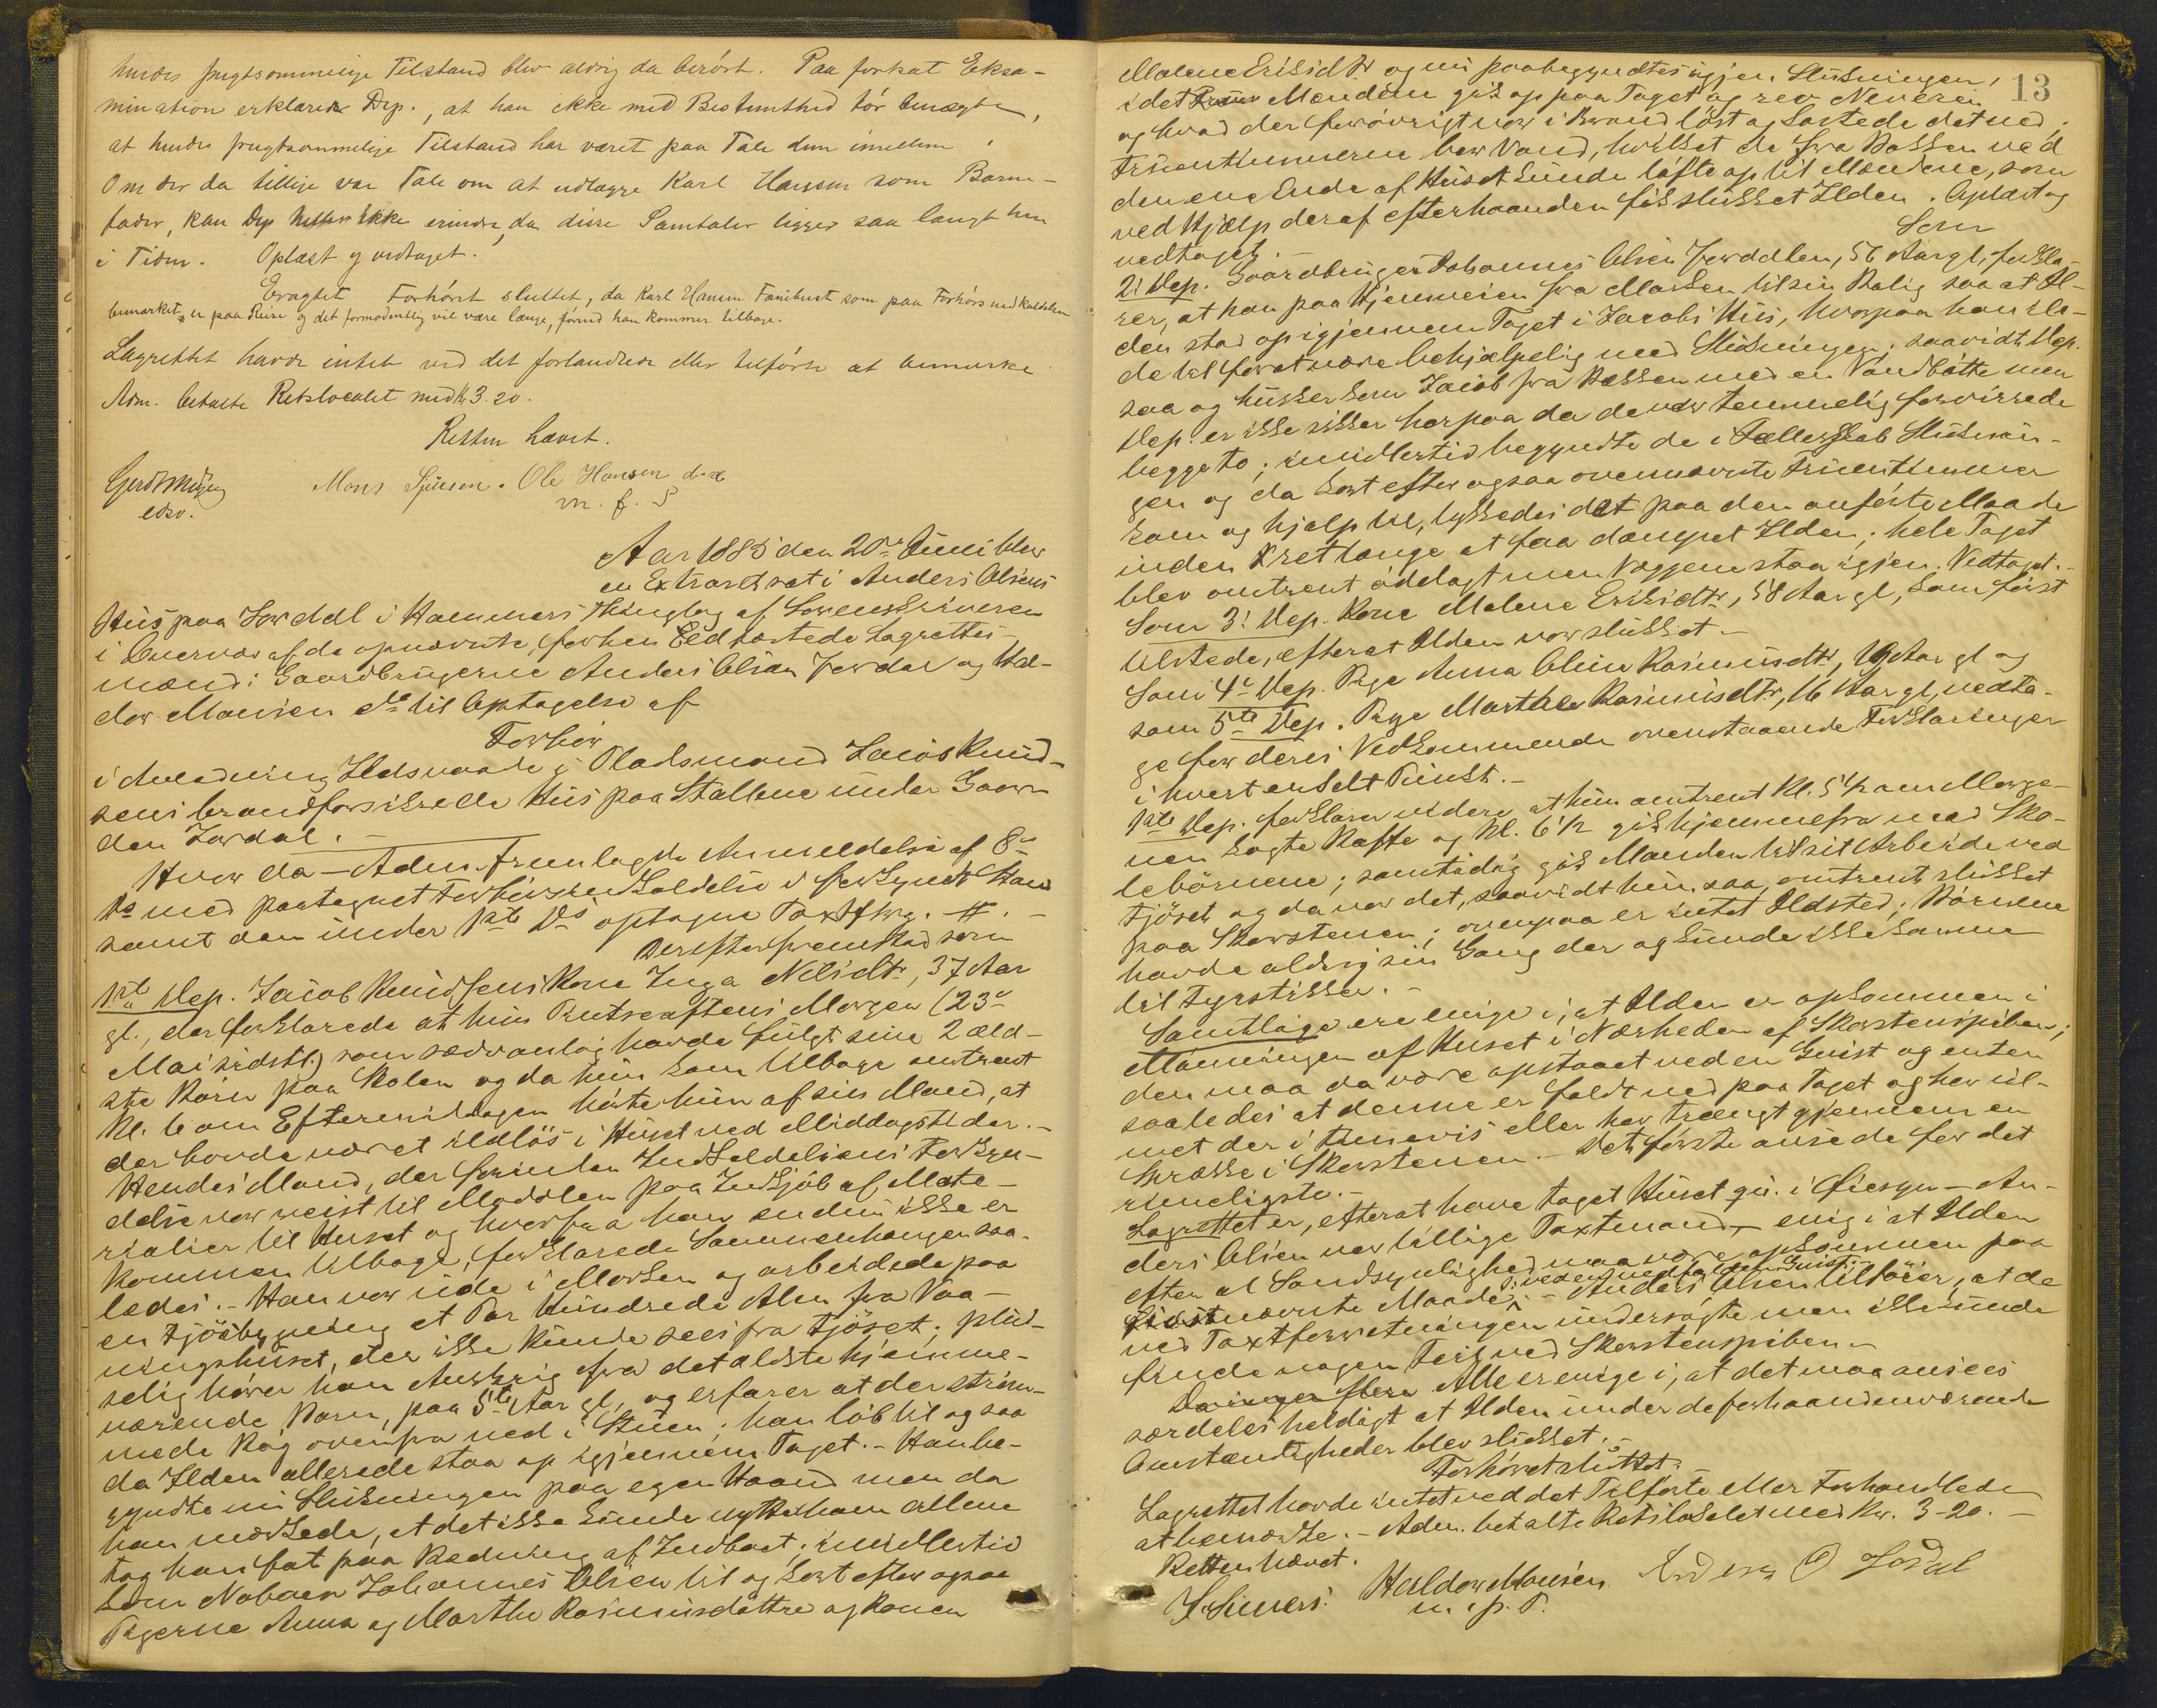 hendes frugtsommelige Tilstand blev aldrig da berört. Paa forkat Eksa-
mination erklærer Dep., at han ikke med Bestemthed tör benægte,
at hendes frugtsommelige Tilstand har været paa Tale dem imellem.
Om der da tillige var Tale om at udlægge Karl Hansen som Barne-
fader, kan Dep heller ikke erindre, da disse Samtaler ligger saa langt hen
i Tiden. Oplæst og vedtaget.
Eragtet Forhöret sluttet, da Karl Hansen som paa Forhörs indkaldelsen
bemærket er paa Reise og det formodentlig vil være længe, förend han kommer tilbage.
Lagrettet havde intet ved det forhandlede eller tilförte at bemærke
Adm. betalte Retslocalet med Kr 3.20.
Retten hævet.
edsv.
Mons Sjursen. Ole Hansen
m. f. P
Aar 1885 den 20de Juni blev
en Extraret sat i Anders Olsens
Huus paa Jordal i Hammers Thinglag af Sorenskriveren
i Overvær af de opnævnte, forhen Eedfæstede Lagrettes-
mænd: Gaardbrugerne Anders Olsen Jordal og Hal-
dor Monsen ds til Optagelse af
Forhör
i Anledning Ildsvaade i Pladsmand Jacob Knud-
sens brandforsikrede Huus paa Stallene under Gaar-
den Jordal.
Hvor da – Adm. fremlagde Anmeldelse af 8de
ds med paategnet Forhörsindkaldelse i forkyndt Stand
samt den under 1ste ds optagne Taxtforrg. #. –
Derefter fremstod som
1ste Dep. Jacob Knudsens Kone Inga Nilsdtr, 37 Aar
gl., der forklarede at hun Pintseaftens Morgen (23de
Mai sidstl.) som sædvanlig havde fulgt sine 2 æld-
ste Börn paa Skolen og da hun kom tilbage omtrent
Kl. 6 om Eftermiddagen hörte hun af sin Mand, at
der havde været ildlös i Huset ved Middagstider. –
Hendes Mand, der forinden Indkaldelsens Forkyn-
delse var reist til Modalen paa Indkjöb af Mate-
rialier til Huset og hvorfra han endnu ikke er
kommen tilbage, forklarede Sammenhængen saa-
ledes. – Han var ude i Marken og arbeidede paa
en Fjösbygning et Par Hundrede Alen fra Vaa-
ningshuset, der ikke kunde sees fra Fjöset; plud-
selig hörer han Anskrig fra det ældste hjemme-
værende Barn, paa 5te Aar gl, og erfarer at der ström-
mede Rög ovenfra ned i Stuen; han löb til og saa
da Ilden allerede staa op igjennem Taget. – Han be-
gyndte nu Slukningen paa egen Haand men da
han mærkede, at det ikke kunde nytte ham allene
tog han fat paa Redning af Indboet; imidlertid
kom Naboen Johannes Olsen til og kort efter ogsaa
Pigerne Anna og Marthe Rasmusdöttre og Konen
13
Malene Eriksdtr og nu paabegyndtes igjen Slukningen,
idet Mændene gik op paa Taget og rev Neveren
og hvad der forövrigt var i Brand löst og kastede det ned.
Fruentimmerne bar Vand, hvilket de fra Bakken ved
den ene Ende af Huset kunde löfte op til Mændene, som
ved Hjælp deraf efterhaanden fik slukket Ilden. Oplæst og
vedtaget. – Som
2. Dep. Gaardbruger Johannes Olsen Jordalen, 56 Aar gl, forkla-
rer, at han paa Hjemveien fra Marken til sin Bolig saa at Il-
den stod op igjennem Taget i Jacobs Huus, hvorpaa han ile-
de til for at være behjælpelig med Slukningen; saavidt Dep.
saa og husker kom Jacob fra Bækken med en Vandbötte men
Dep. er ikke sikker herpaa da de var temmelig forvirrede
begge to; imidlertid begyndte de i Fælleskab Sluknin-
gen og da kort efter ogsaa ovennævnte Fruentimmer
kom og hjalp til, lykkedes det paa den anförte Maade
inden ret længe at faa dæmpet Ilden; hele Taget
blev omtrent ödelagt men Væggene staa igjen. Vedtaget. –
Som 3. Dep. Kone Malene Eriksdtr, 58 Aar gl, kom först
tilstede, efterat Ilden var slukket. –
Som 4de Dep. Pige Anna Oline Rasmusdtr, 19 Aar gl og
som 5te Dep. Pige Marthe Rasmusdtr, 16 Aar gl, vedta-
ge for deres Vedkommende ovenstaaende Forklaringer
i hvert enkelt Punkt. –
1ste Dep. forklarer videre at hun omtrent Kl. 5½ om Morge-
nen kogte Kaffe og Kl. 6½ gik hjemmefra med Sko-
lebörnene; samtidig gik Manden til sit Arbeide ved
Fjöset og da var det, saavidt hun saa, omtrent slukket
paa Skorstenen; ovenpaa er intet Ildsted; Börnene
havde aldrig sin Gang der og kunde ikke komme
til Fyrstikker. –
Samtlige ere enige i, at Ilden er opkommen i
Mönningen af Huset i Nærheden af Skorstenspiben;
den maa da være opstaaet ved en Gnist og enten
saaledes at denne er faldt ned paa Taget og har ul-
met der i timevis eller har trængt gjennem en
Sprække i Skorstenen. – Det förste ansees for det
rimeligste. –
Lagrettet er, efterat have taget Huset i Öiesyn – An-
ders Olsen var tillige Taxtmand – enig i at Ilden
efter al Sandsynlighed maa være opkommen paa
sidstnævnte Maade, : ved en nedfalden Gnist. – Anders Olsen tilföier, at de
ved Taxtforretningen undersögte men ikke kunde
finde nogen Feil ved Skorstenspiben. –
Alle er enige i, at det maa ansees
særdeles heldigt at Ilden under de forhaandenværende
Omstændigheder blev slukket. –
Forhöret sluttet.
Lagrettet havde intet ved det Tilförte eller Forhandlede
at bemærke. – Adm. betalte Retslokalet med Kr. 3-20. –
Retten hævet.
Haldor Monsen Anders O Jordal
m. p. P.